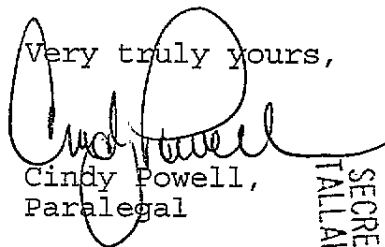 Very truly yours,
Cindy Powell
Cindy Powell,
Paralegal
SECRE
TALLA